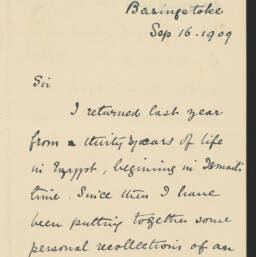 Basingstoke
Sep 16. 1909
Sir
I returned last year
from a thirty years of life
in Egypt, begining in Ismail's
time. Since then I have
been putting together some
personal recollections of an